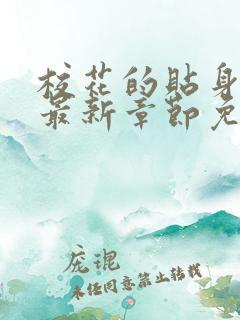 校花的贴身
最新章节免
庞琨
未经同意禁止转载